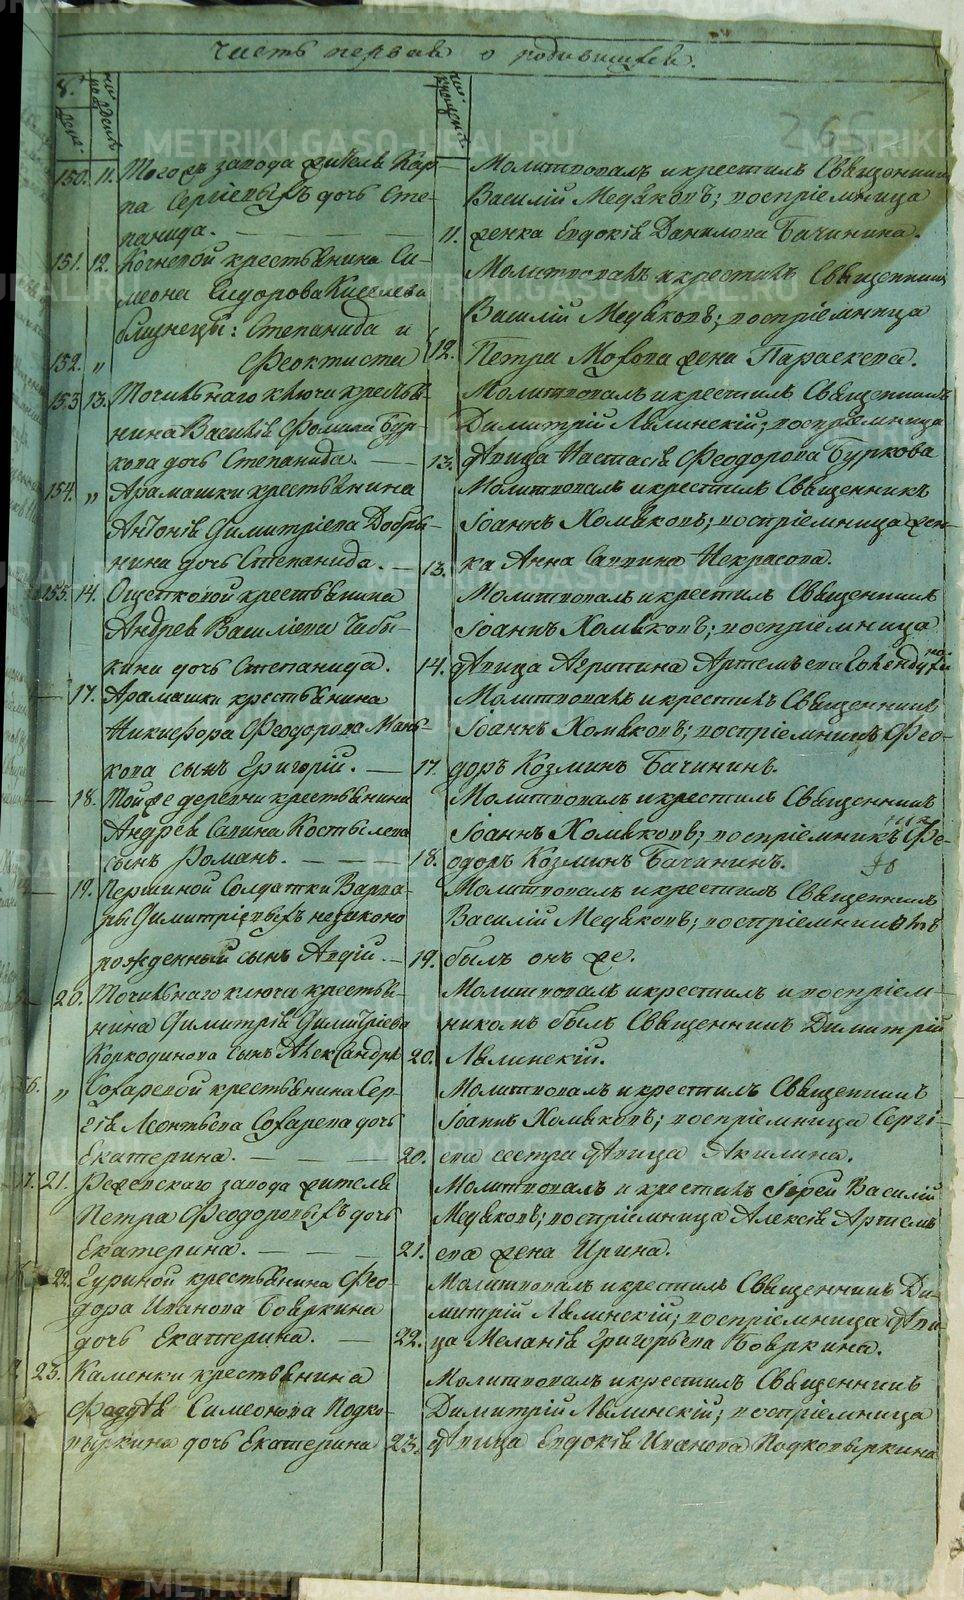 Часть первая о родившихся.
265
150. 11. Тогожъ завода жителя Кар-
па Сергіевыхъ дочь Сте-
панида.
Молитвовалъ и крестилъ Священникъ
Василій Медяковъ; воспріемница
11. женка Евдокія Данилова Бачинина.
151. 12. Кочневой крестьянина Си-
меона Сидорова Киселева
близнецы: Степанида и
152. " Феоктиста
Молитвовалъ и крестилъ Священникъ
Василій Медяковъ; воспріемница
12. Петра жена Параскева.
153 13. Точильнаго ключа крестья-
нина Василія Фомина Бур-
кова дочь Степанида.
Молитвовалъ и крестилъ Священникъ
Димитрій Лялинскій; воспріемница
13. дѣвица Настасія Феодорова Буркова
154. " Арамашки крестьянина
Антонія Димитріева Добры-
нина дочь Степанида.
Молитвовалъ и крестилъ Священникъ
Іоаннъ Хомяковъ; воспріемница жен-
13. ка Анна Саввина Некрасова.
155. 14. Ощепковой крестьянина
Андрея Василіева Чебы-
кина дочь Степанида.
Молитвовалъ и крестилъ Священникъ
Іоаннъ Хомяковъ; воспріемница
14. дѣвица Агрипина Артемьева
17. Арамашки крестьянина
Никифора Феодорова Мань-
кова сынъ Григорій.
Молитвовалъ и крестилъ Священникъ
Іоаннъ Хомяковъ; воспріемникъ Фео-
17. доръ Козминъ Бачининъ.
18. Тойже деревни крестьянина
Андрея Савина Костылева
сынъ Романъ.
Молитвовалъ и крестилъ Священникъ
Іоаннъ Хомяковъ; воспріемникъ Фе-
18. одоръ Козминъ Бачининъ.
19. Першиной Солдатки Варва-
ры Димитріевыхъ незаконо
рожденный сынъ Авдій.
Молитвовалъ и крестилъ Священникъ
Василій Медяковъ; воспріемникомъ
19. былъ онъ же.
20. Точильнаго ключа крестья-
нина Димитрія Димитріева
Коркодинова сынъ Александръ
Молитвовалъ и крестилъ и воспріем-
никомъ былъ Священникъ Димитрій
20. Лялинскій.
" Сохаревой крестьянина Сер-
гія Леонтьева Сохарева дочь
Екатерина.
Молитвовалъ и крестилъ Священникъ
Іоаннъ Хомяковъ; воспріемница Сергі-
20. ева сестра дѣвица Акилина.
21. Режевскаго завода жителя
Петра Феодоровыхъ дочь
Екатерина.
Молитвовалъ и крестилъ Іерей Василій
Медяковъ; воспріемница Алексія Артемь
21. ева жена Ирина.
22. Гуриной крестьянина Фео-
дора Иванова Бояркина
дочь Екатерина.
Молитвовалъ и крестилъ Священникъ Ди-
митрій Лялинскій; воспріемница дѣви-
22. ца Меланія Григорьева Бояркина.
23. Каменки крестьянина
Фаддея Симеонова Подко-
выркина дочь Екатерина
Молитвовалъ и крестилъ Священникъ
Димитрій Лялинскій; воспріемница
23. дѣвица Евдокія Иванова Подковыркина